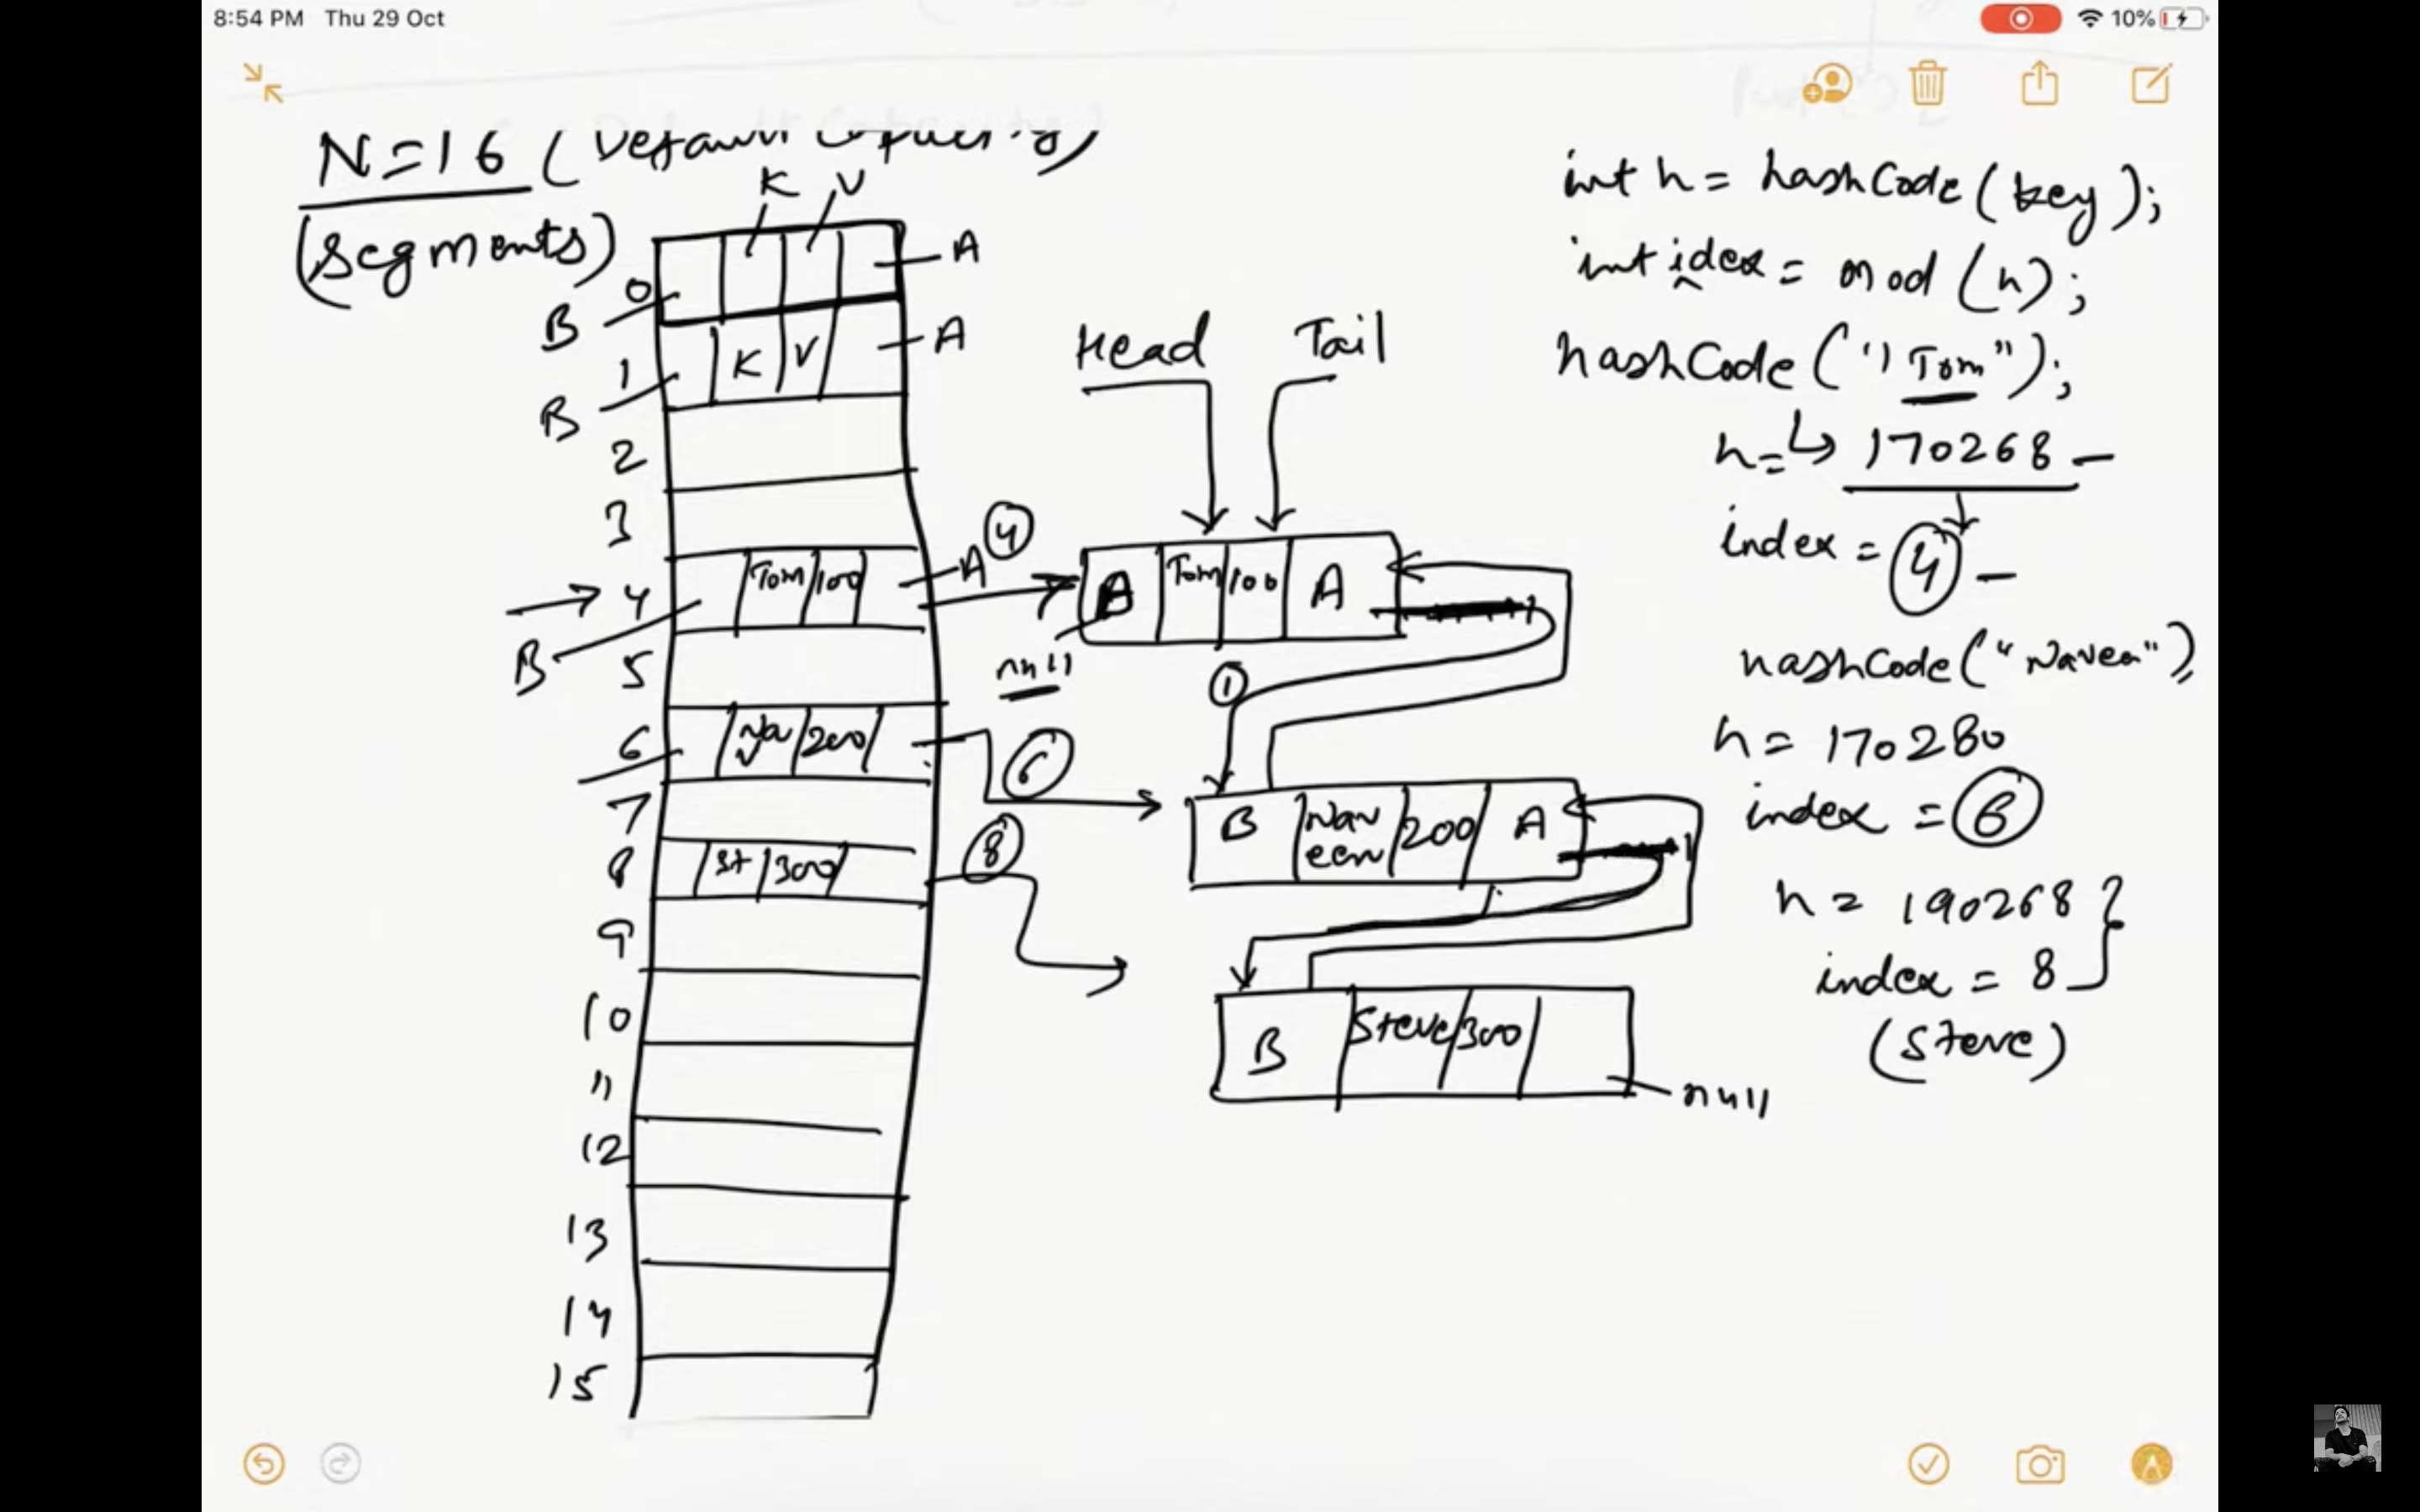 8:54 PM Thu 29 Oct
10%
N=16 (Default Capacity)
(segments)
K V
A
0
B
K V
A
1
B
2
3
4
Tom 100
A
4
B
5
6
Nav 200
6
7
8
St 300
8
9
10
11
12
13
14
15
Head Tail
B Tom 100 A
null
1
B Naveen 200 A
B Steve 300
null
int h = hashCode(key);
int idex = mod(h);
hashCode("Tom");
h= 170268
index = 4
hashCode("Naveen")
h = 170280
index = 6
h = 190268
index = 8
(Steve)